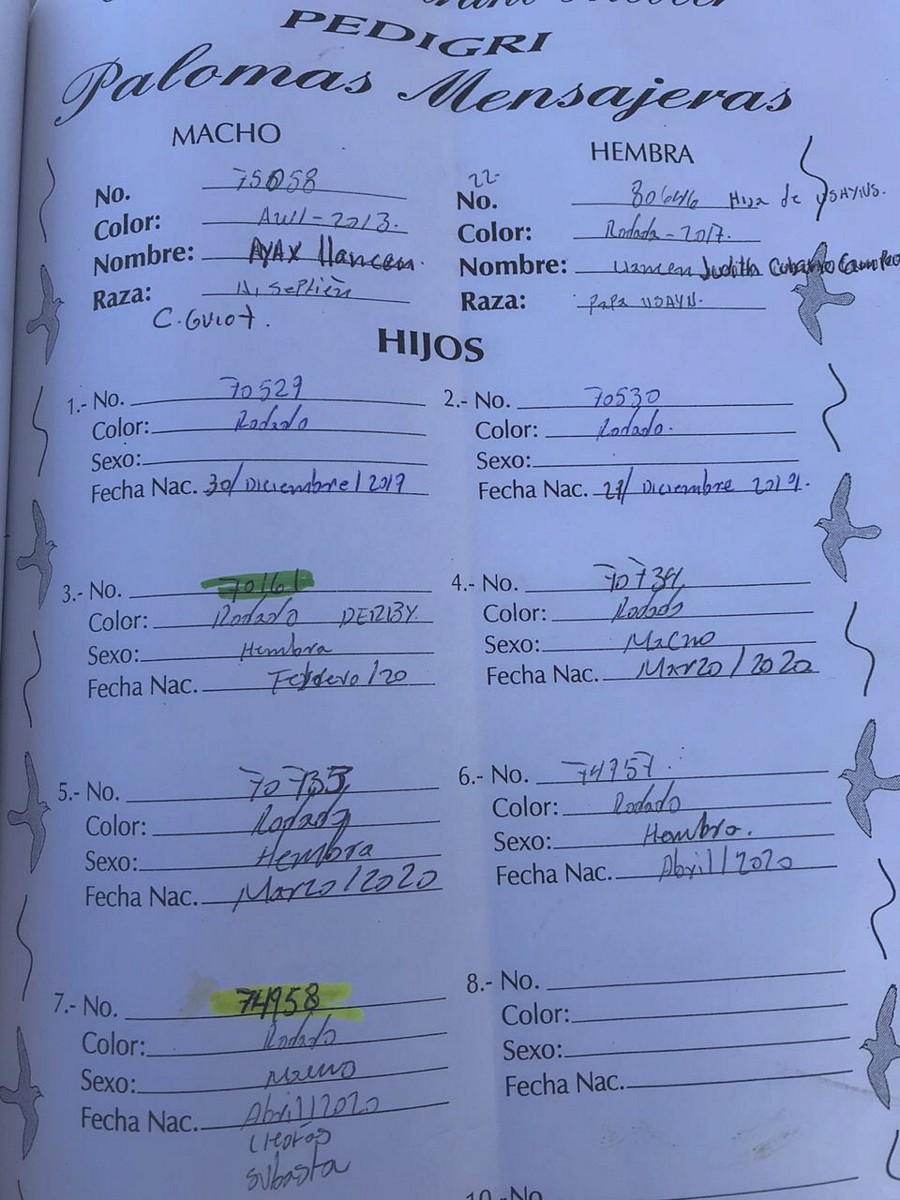 PEDIGRI
Palomas Mensajeras
MACHO
No. 75058
Color: Azul-2013.
Nombre: AYAX
Raza: N. Septién
C. Guiot.
HEMBRA
22-
No. 80646 Hija de USAYNS.
Color: Rodada-2017.
Nombre: Judith Cubano
Raza: PAPA USAYN.
HIJOS
1.- No. 70529
Color: Rodado
Sexo:
Fecha Nac. 30/Diciembre/2019
2.- No. 70530
Color: Rodado.
Sexo:
Fecha Nac. Diciembre 2019.
3.- No. 70161
Color: Rodado DERBY.
Sexo: Hembra
Fecha Nac. Febrero/20
4.- No.
Color: Rodado
Sexo: Macho
Fecha Nac. Marzo/2020
5.- No.
Color: Rodada
Sexo: Hembra
Fecha Nac. Marzo/2020
6.- No. 74957.
Color: Rodado
Sexo: Hembra.
Fecha Nac. Abril/2020
7.- No. 74958
Color: Rodado
Sexo: Macho
Fecha Nac. Abril/2020
subasta
8.- No.
Color:
Sexo:
Fecha Nac.
10.-No.